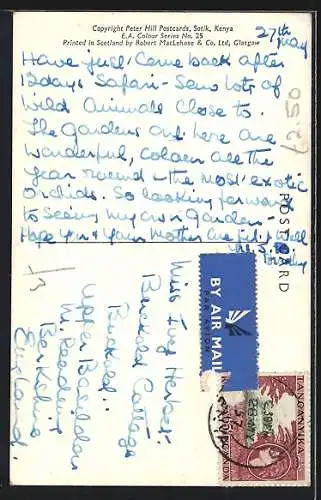 Copyright Peter Hill Postcards, Sotik, Kenya
E.A. Colour Series No. 25
Printed in Scotland by Robert MacLehose & Co. Ltd, Glasgow
27th May
Have just come back after
12 days Safari - Saw lots of
Wild Animals close to.
The Gardens out here are
Wonderful, Colour all the
Year round - the most exotic
Orchids. So looking forward
to Seeing my own Garden -
Hope You & Your Mother are full well
POSTCARD
£2.50
Miss
Cottage
Bucknell
Upper Basildon
Nr. Reading
Berkshire
England.
1/3
BY AIR MAIL
PAR AVION
TANGANYIKA